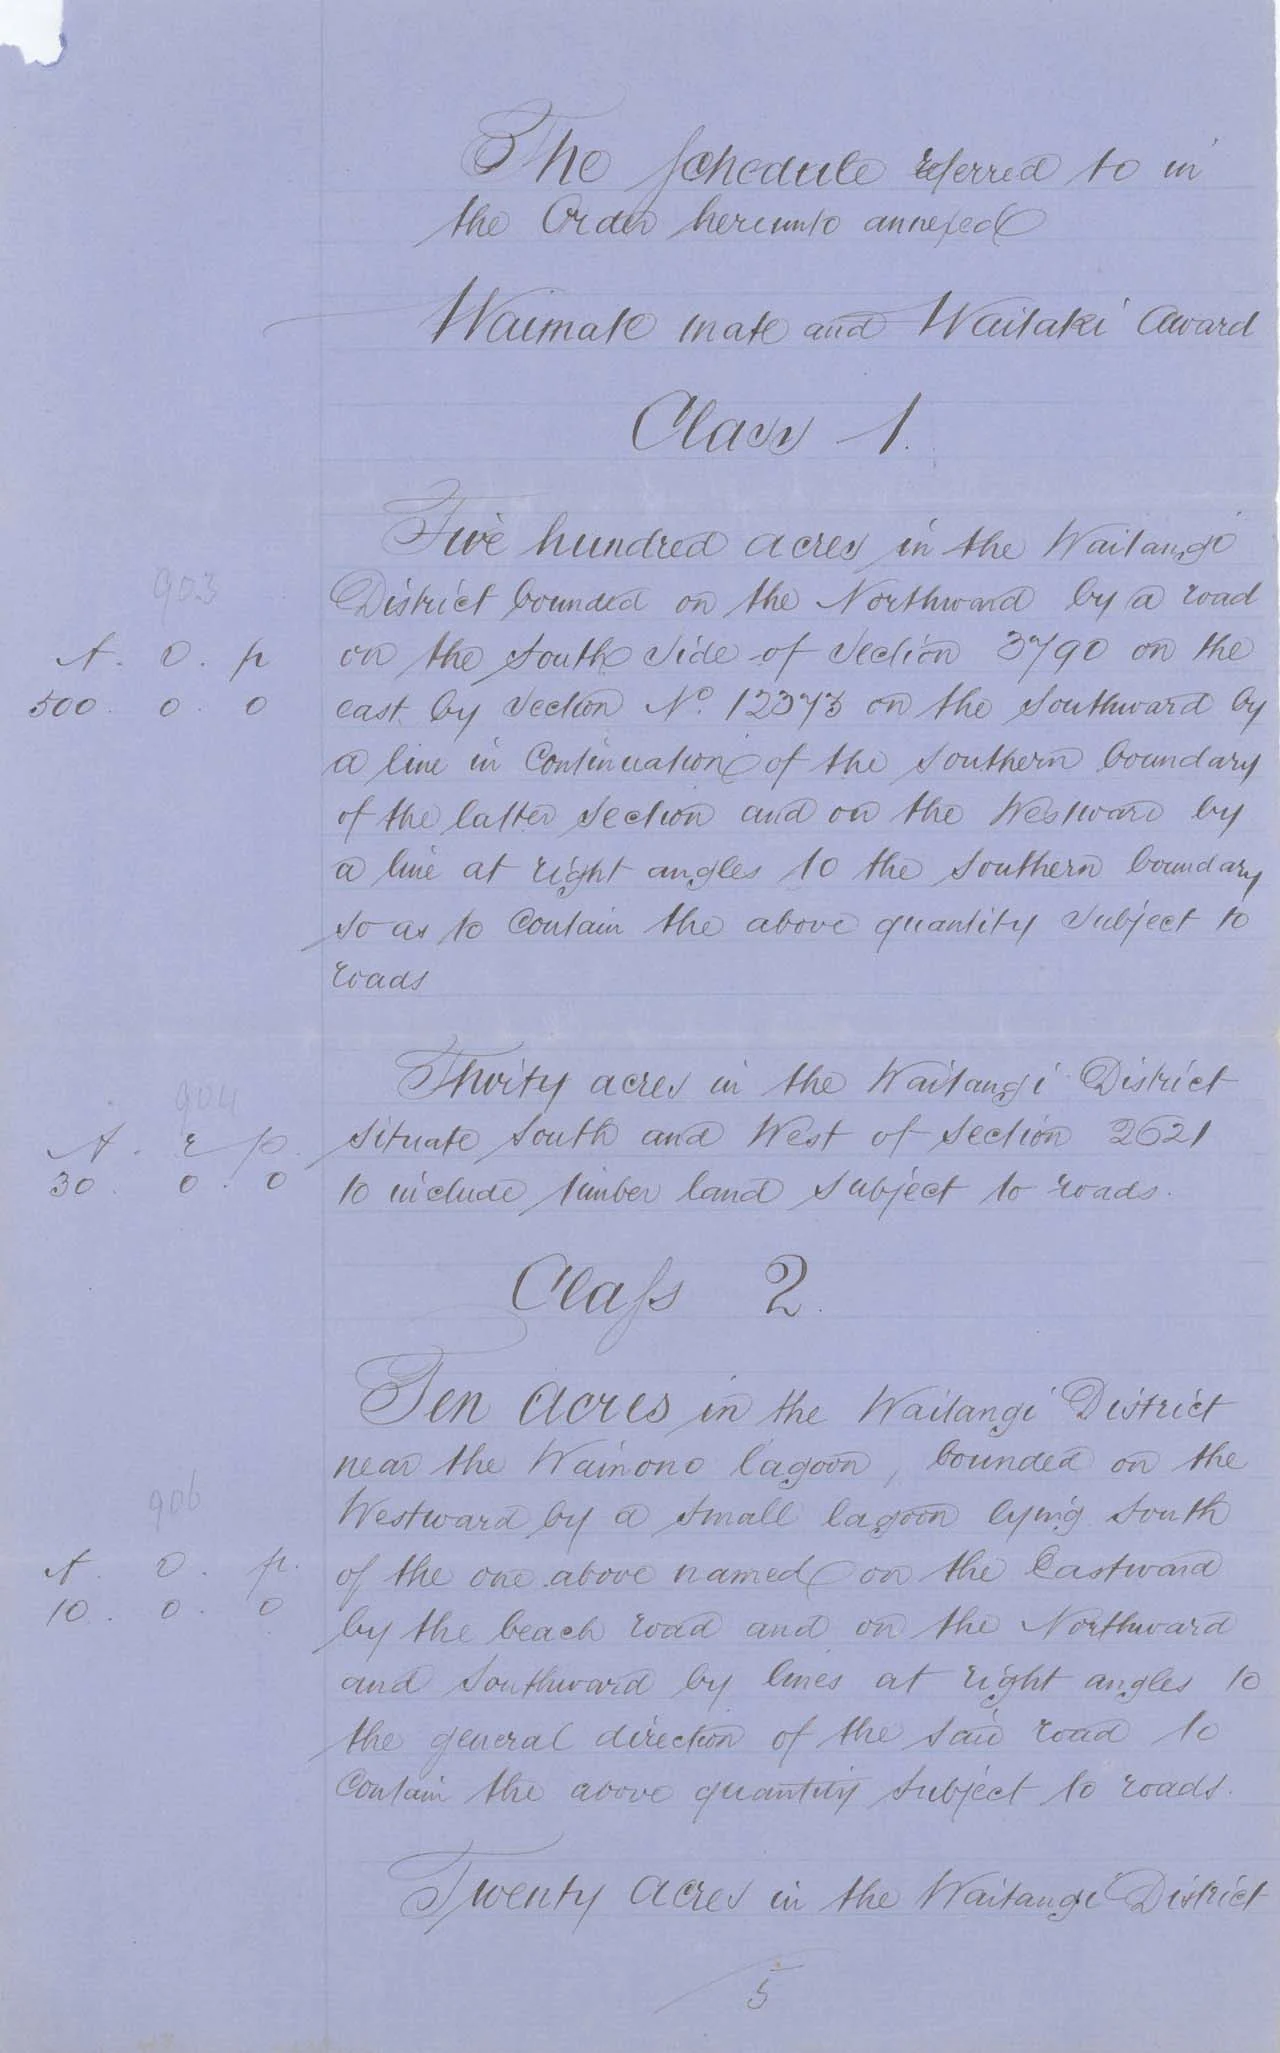 The Schedule referred to in
the Order hereunto annexed
Waimate mate and Waitaki Award
Class 1.
Five hundred acres in the Waitangi
903
District bounded on the Northward by a road
A. O. p
on the South Side of Section 3790 on the
500. 0. 0
east by Section No. 12373 on the Southward by
a line in Continuation of the Southern boundary
of the latter Section and on the Westward by
a line at right angles to the Southern boundary
so as to Contain the above quantity Subject to
roads
Thirty acres in the Waitangi District
904
A. r p.
situate South and West of Section 2621
30. 0. 0
to include timber land Subject to roads.
Class 2.
Ten Acres in the Waitangi District
near the Wainono lagoon, bounded on the
906
Westward by a Small lagoon lying South
A. O. p.
of the one above named on the Eastward
10. 0. 0
by the beach road and on the Northward
and Southward by lines at right angles to
the general direction of the said road to
Contain the above quantity Subject to roads.
Twenty Acres in the Waitangi District
5